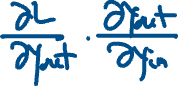 ∂L/∂y_out · ∂y_out/∂y_in